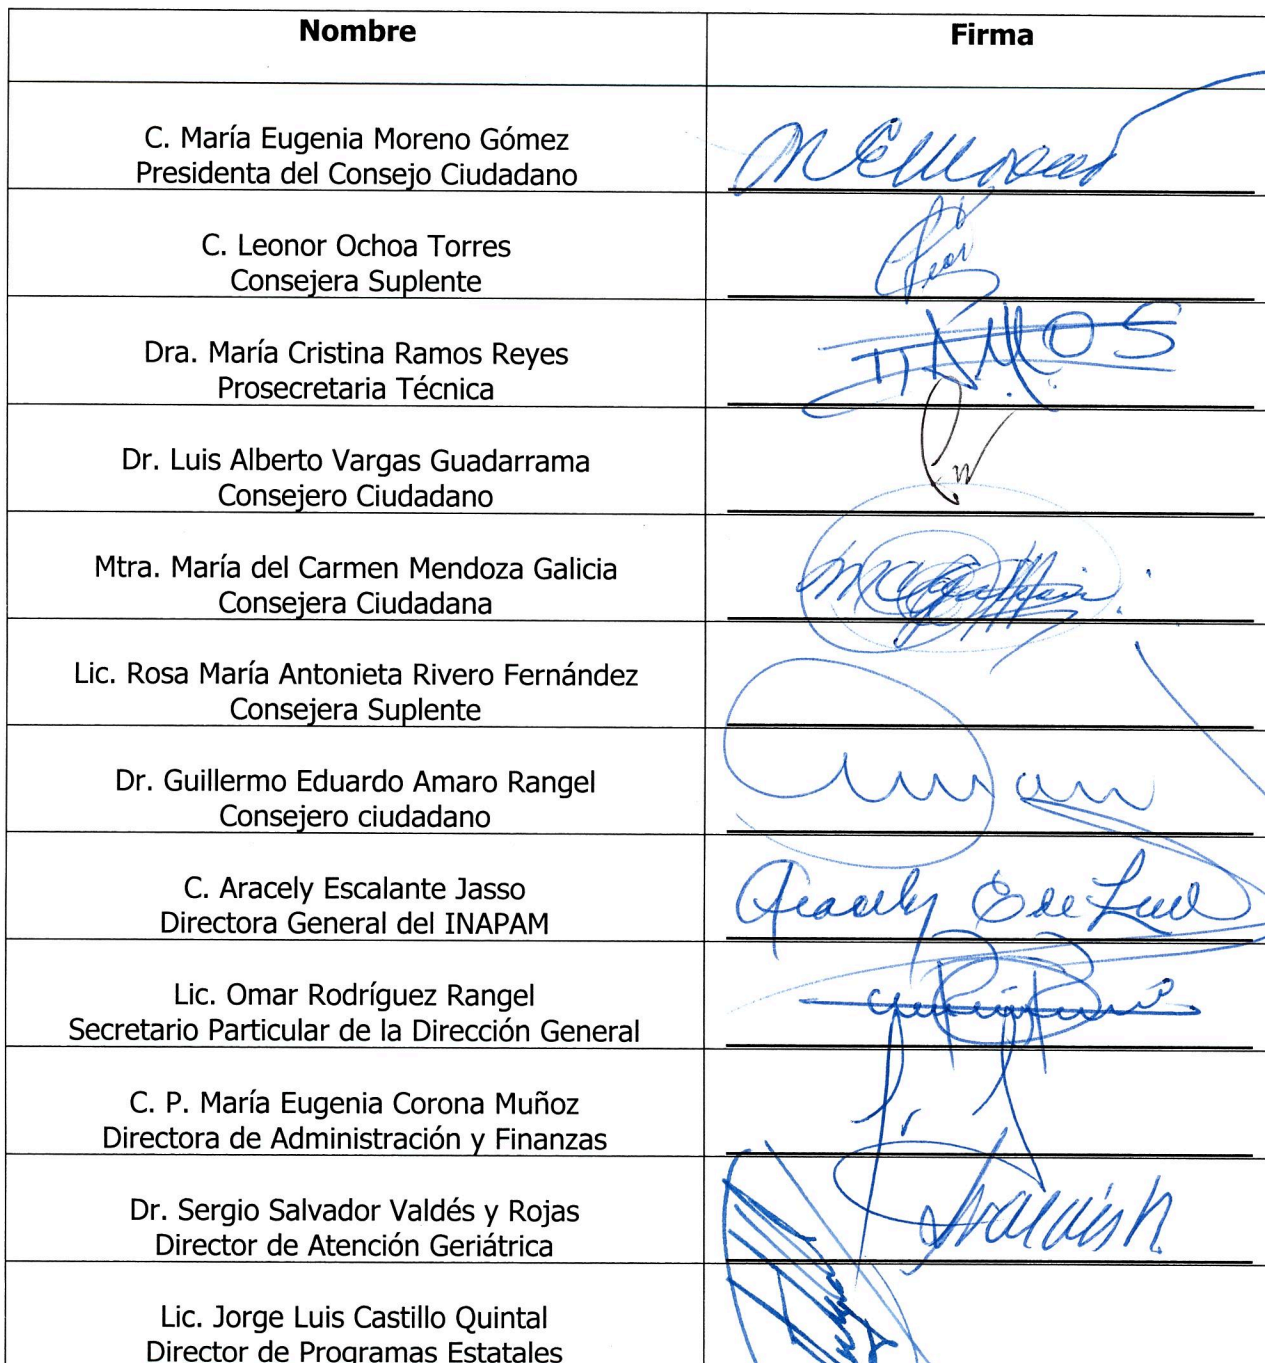 Nombre
Firma
C. María Eugenia Moreno Gómez
Presidenta del Consejo Ciudadano
C. Leonor Ochoa Torres
Consejera Suplente
Dra. María Cristina Ramos Reyes
Prosecretaria Técnica
Dr. Luis Alberto Vargas Guadarrama
Consejero Ciudadano
Mtra. María del Carmen Mendoza Galicia
Consejera Ciudadana
Lic. Rosa María Antonieta Rivero Fernández
Consejera Suplente
Dr. Guillermo Eduardo Amaro Rangel
Consejero ciudadano
C. Aracely Escalante Jasso
Directora General del INAPAM
Aracely
Lic. Omar Rodríguez Rangel
Secretario Particular de la Dirección General
C. P. María Eugenia Corona Muñoz
Directora de Administración y Finanzas
Dr. Sergio Salvador Valdés y Rojas
Director de Atención Geriátrica
Lic. Jorge Luis Castillo Quintal
Director de Programas Estatales